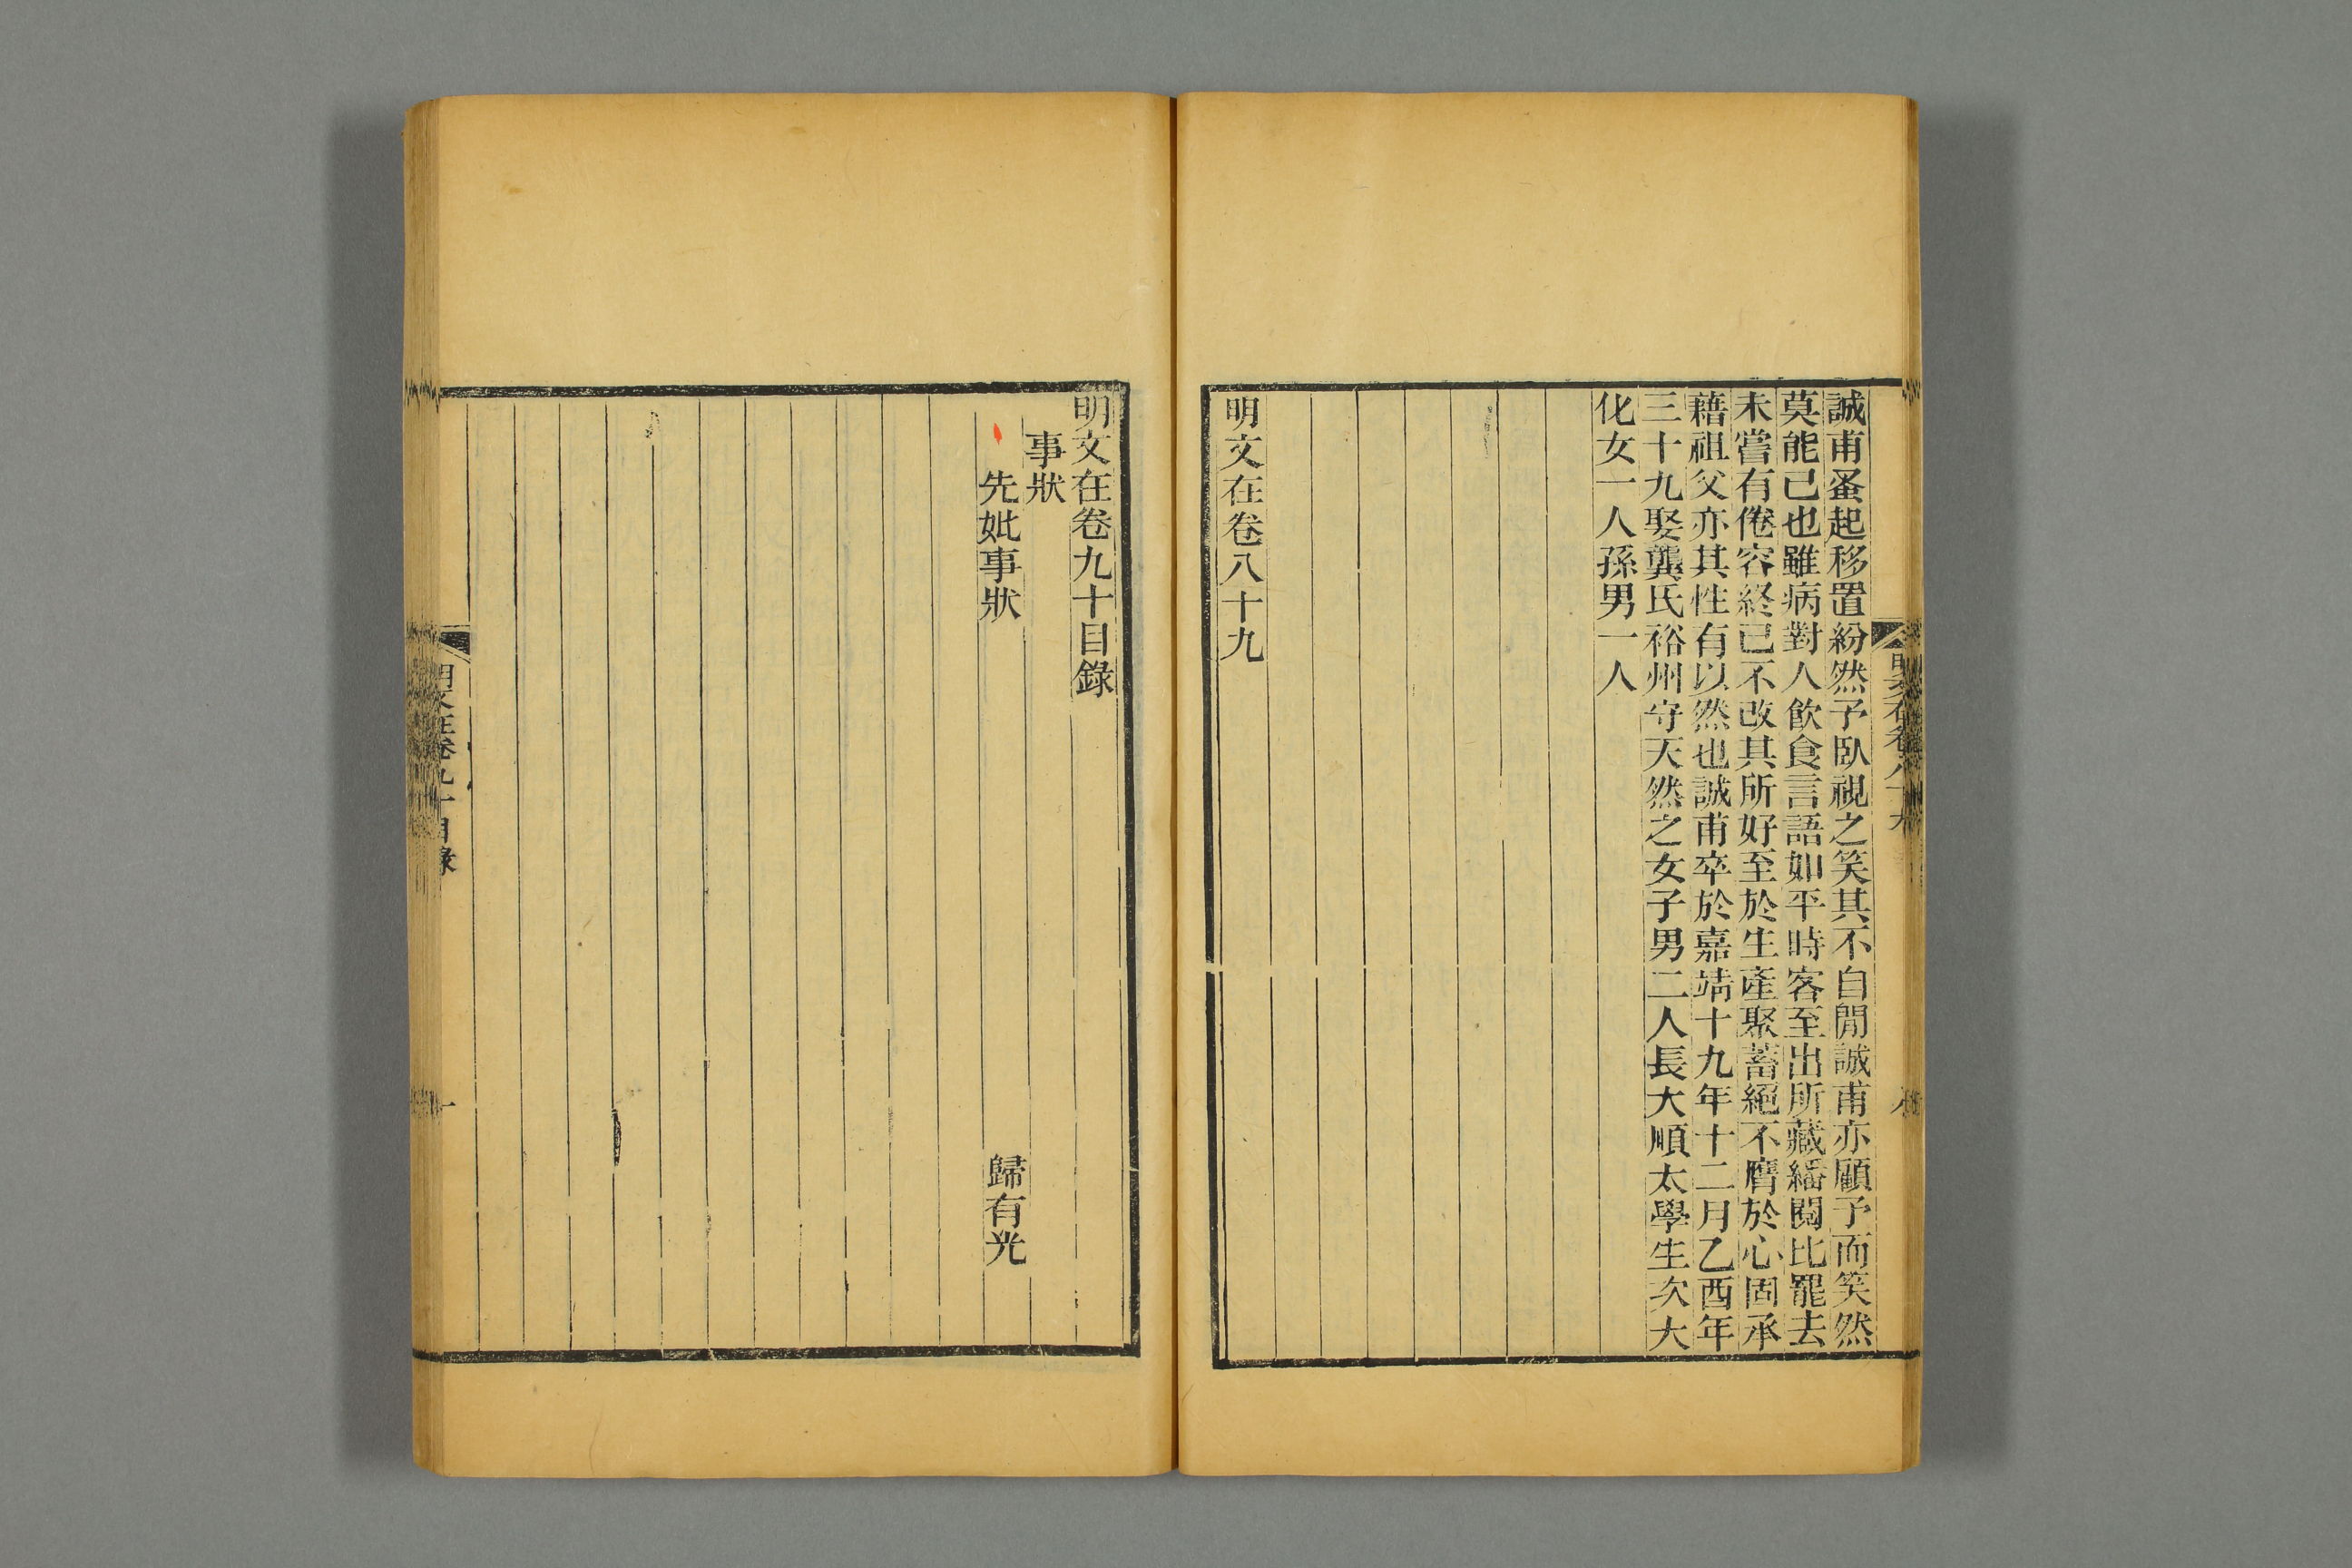 誠甫蚤起移置紛然予臥視之笑其不自閒誠甫亦顧予而笑然
莫能已也雖病對人飲食言語如平時客至出所藏繙閱比罷去
未嘗有倦容終已不改其所好至於生產聚蓄絕不膺於心固承
藉祖父亦其性有以然也誠甫卒於嘉靖十九年十二月乙酉年
三十九娶龔氏裕州守天然之女子男二人長大順太學生次大
化女一人孫男一人
明文在卷八十九
明文在卷九十目錄
事狀
先妣事狀 歸有光
明文在卷九十目錄
一